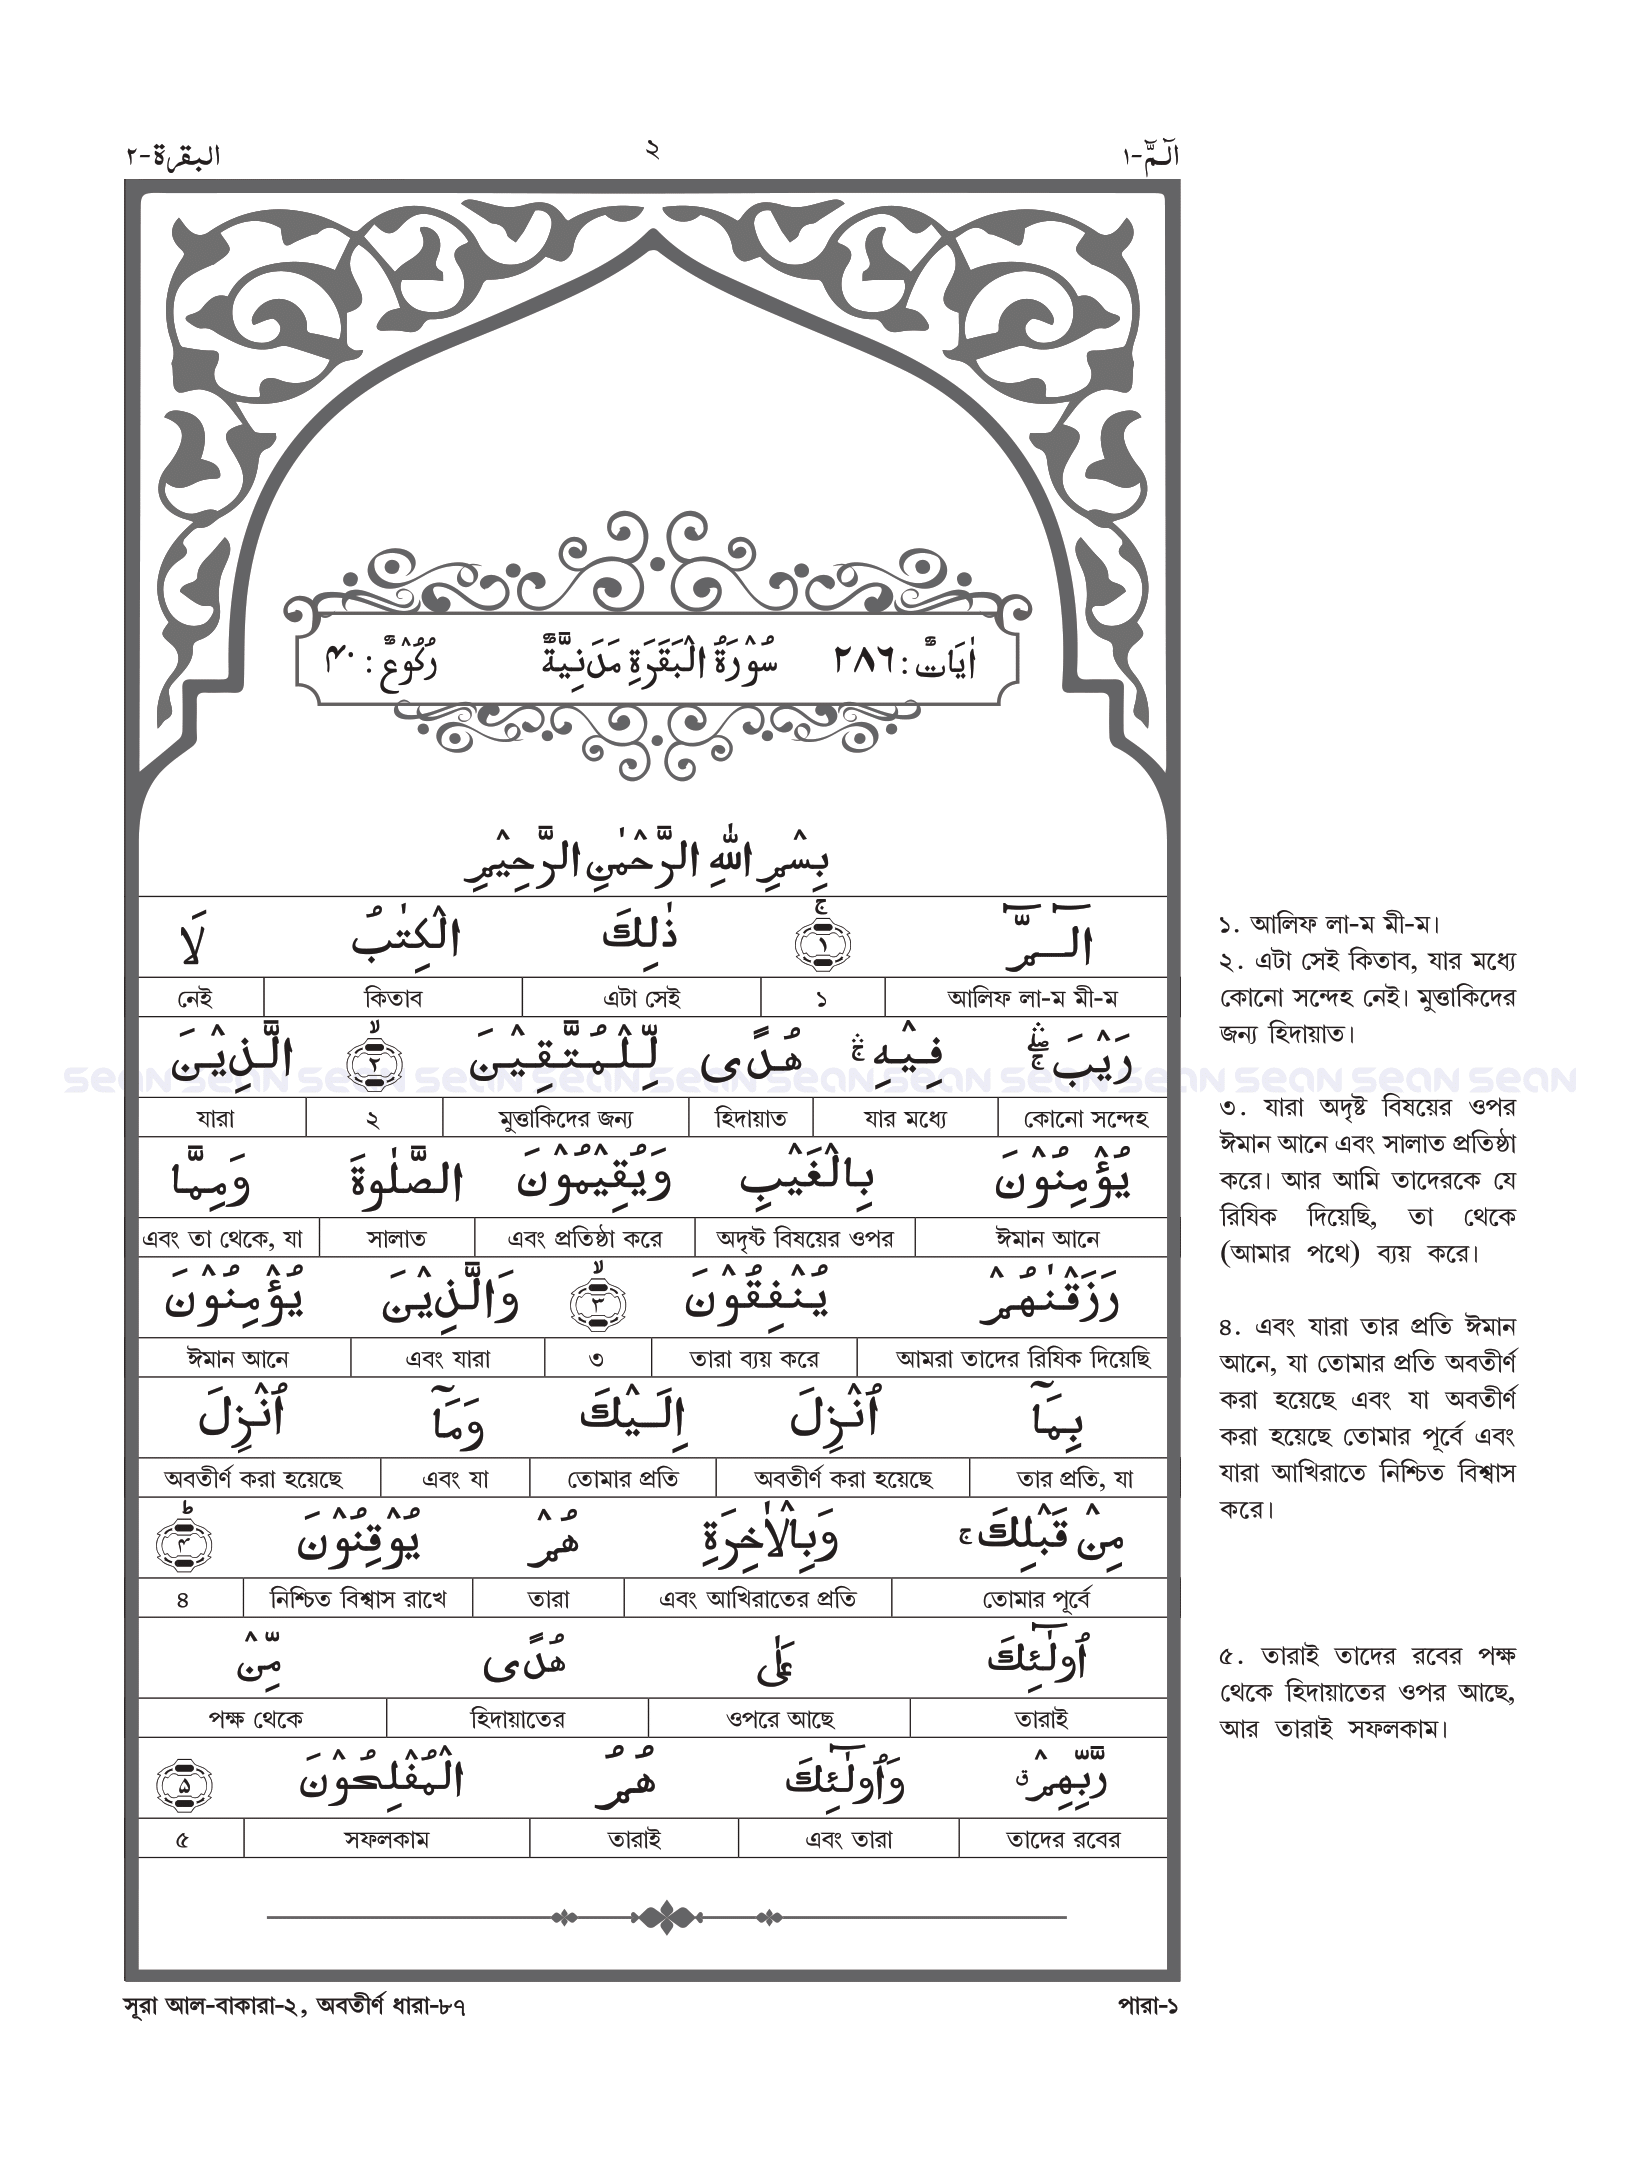 الٓمّٓ-١ ٢ البقرة-٢
اٰيَاتٌ : ٢٨٦ سُوْرَةُ الْبَقَرَةِ مَدَنِيَّةٌ رُكُوْعٌ : ۴۰
بِسْمِ اللّٰهِ الرَّحْمٰنِ الرَّحِيْمِ
الٓـمّٓ ۚ﴿١﴾ ذٰلِكَ الْكِتٰبُ لَا
আলিফ লা-ম মী-ম ১ এটা সেই কিতাব নেই
رَيْبَ ۛۖۚ فِيْهِ ۛۚ هُدًى لِّلْمُتَّقِيْنَ ۙ﴿٢﴾ الَّذِيْنَ
কোনো সন্দেহ যার মধ্যে হিদায়াত মুত্তাকিদের জন্য ২ যারা
يُؤْمِنُوْنَ بِالْغَيْبِ وَيُقِيْمُوْنَ الصَّلٰوةَ وَمِمَّا
ঈমান আনে অদৃষ্ট বিষয়ের ওপর এবং প্রতিষ্ঠা করে সালাত এবং তা থেকে, যা
رَزَقْنٰهُمْ يُنْفِقُوْنَ ۙ﴿٣﴾ وَالَّذِيْنَ يُؤْمِنُوْنَ
আমরা তাদের রিযিক দিয়েছি তারা ব্যয় করে ৩ এবং যারা ঈমান আনে
بِمَآ اُنْزِلَ اِلَـيْكَ وَمَآ اُنْزِلَ
তার প্রতি, যা অবতীর্ণ করা হয়েছে তোমার প্রতি এবং যা অবতীর্ণ করা হয়েছে
مِنْ قَبْلِكَ ۚ وَبِالْاٰخِرَةِ هُمْ يُوْقِنُوْنَ ؕ﴿۴﴾
তোমার পূর্বে এবং আখিরাতের প্রতি তারা নিশ্চিত বিশ্বাস রাখে ৪
اُولٰٓئِكَ عَلٰى هُدًى مِّنْ
তারাই ওপরে আছে হিদায়াতের পক্ষ থেকে
رَّبِّهِمْ ۗ وَاُولٰٓئِكَ هُمُ الْمُفْلِحُوْنَ ﴿۵﴾
তাদের রবের এবং তারা তারাই সফলকাম ৫
১. আলিফ লা-ম মী-ম।
২. এটা সেই কিতাব, যার মধ্যে
কোনো সন্দেহ নেই। মুত্তাকিদের
জন্য হিদায়াত।
৩. যারা অদৃষ্ট বিষয়ের ওপর
ঈমান আনে এবং সালাত প্রতিষ্ঠা
করে। আর আমি তাদেরকে যে
রিযিক দিয়েছি, তা থেকে
(আমার পথে) ব্যয় করে।
৪. এবং যারা তার প্রতি ঈমান
আনে, যা তোমার প্রতি অবতীর্ণ
করা হয়েছে এবং যা অবতীর্ণ
করা হয়েছে তোমার পূর্বে এবং
যারা আখিরাতে নিশ্চিত বিশ্বাস
করে।
৫. তারাই তাদের রবের পক্ষ
থেকে হিদায়াতের ওপর আছে,
আর তারাই সফলকাম।
সূরা আল-বাকারা-২, অবতীর্ণ ধারা-৮৭ পারা-১
sean sean sean sean sean sean sean sean sean sean sean sean sean